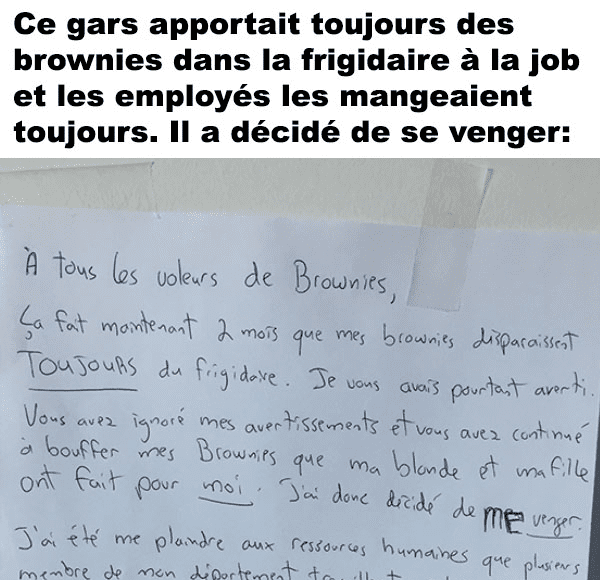 Ce gars apportait toujours des
brownies dans la frigidaire à la job
et les employés les mangeaient
toujours. Il a décidé de se venger:
À tous les voleurs de Brownies,
Ça fait maintenant 2 mois que mes brownies disparaissent
TOUJOURS du frigidaire. Je vous avais pourtant averti.
Vous avez ignoré mes avertissements et vous avez continué
à bouffer mes Brownies que ma blonde et ma fille
ont fait pour moi. J'ai donc décidé de me venger.
J'ai été me plaindre aux ressources humaines que plusieurs
membre de mon département